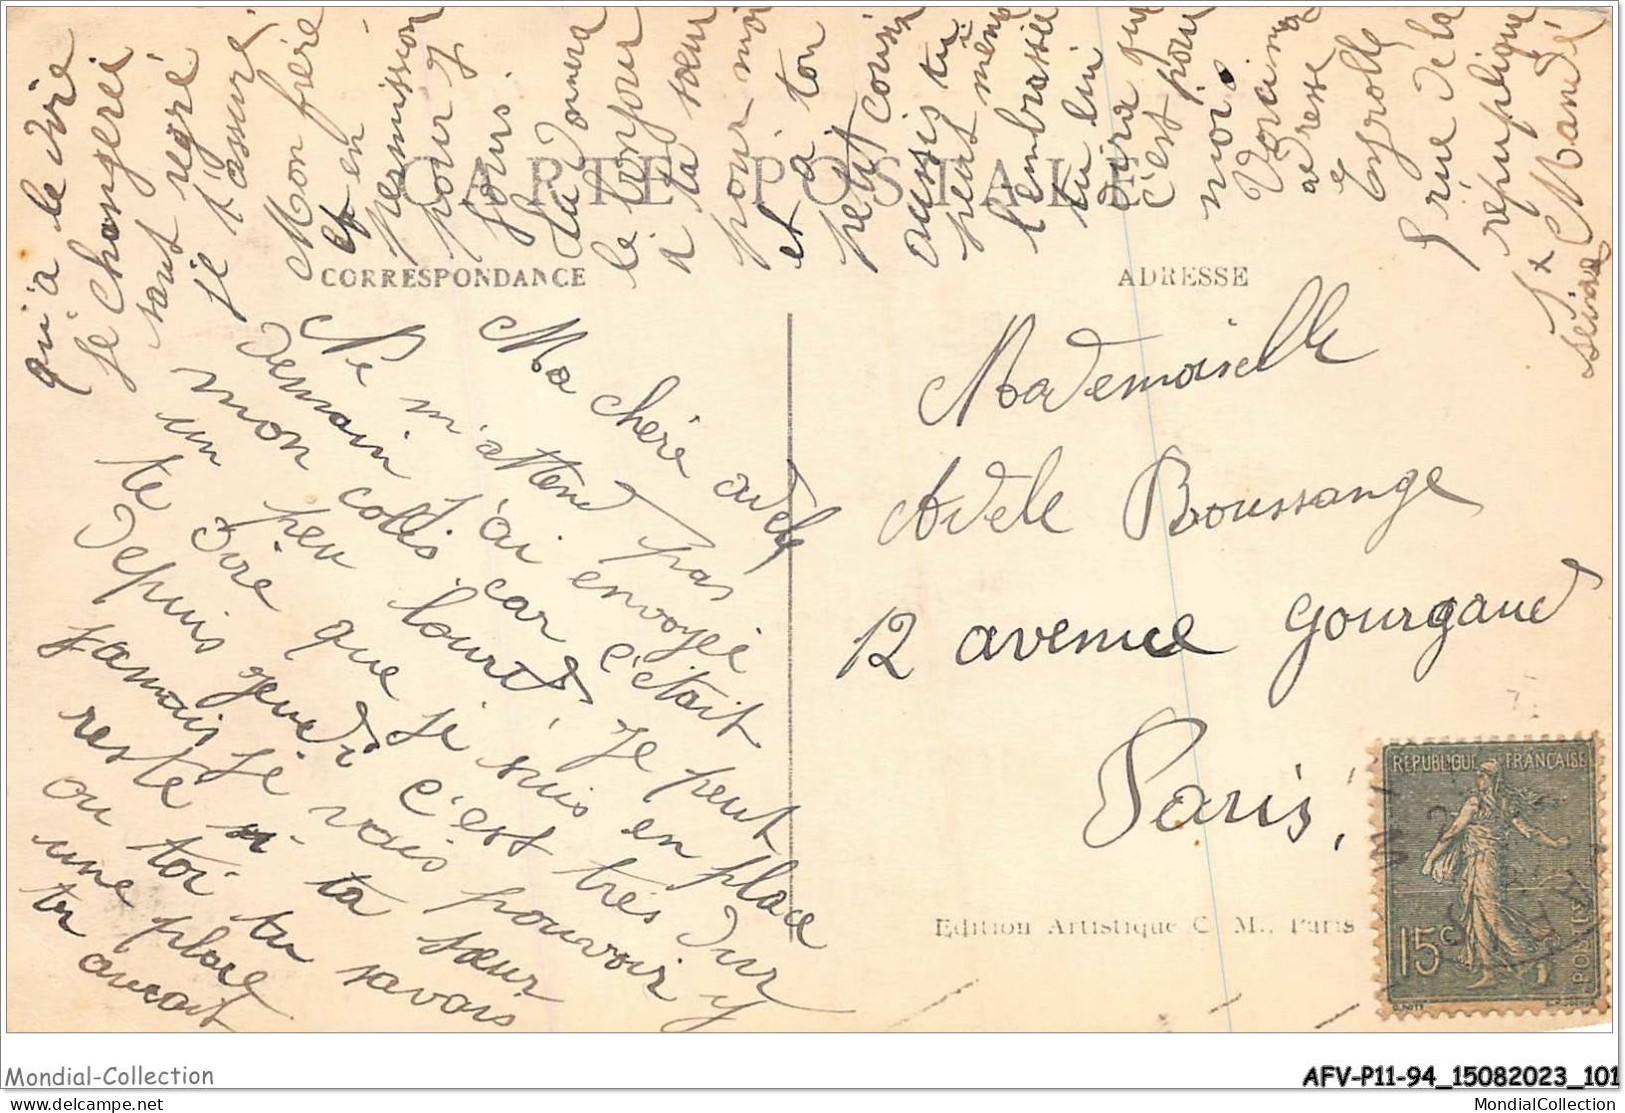 CARTE POSTALE
CORRESPONDANCE
Ma chère adele
Ne m'attend pas
demain j'ai envoyée
mon collis car c'était
un peu lourd je peut
te dire que je suis en place
depuis jeudi c'est très dur
jamais je vais pouvoir y
reste si ta sœur
ou toi tu savais
une place
tu aurait
qu'a le dire
je changerei
sant regré
je t'assure
Mon frère
est en
permission
pour 7
jours
tu donnera
le bonjour
a ta sœur
pour moi
et a ton
petit cousin
aussis tu
peut même
l'embrassée
tu lui
dira que
c'est pour
moi.
Voci ma
adresse
Eyrolle
rue de la
répuplique
St Mandé
seine
ADRESSE
Mademoiselle
Adele Boussange
12 avenue Gourgaud
Paris.
REPUBLIQUE FRANÇAISE
15c
POSTES
Edition Artistique C. M., Paris
Mondial-Collection
AFV-P11-94_15082023_101
delcampe.net
MondialCollection